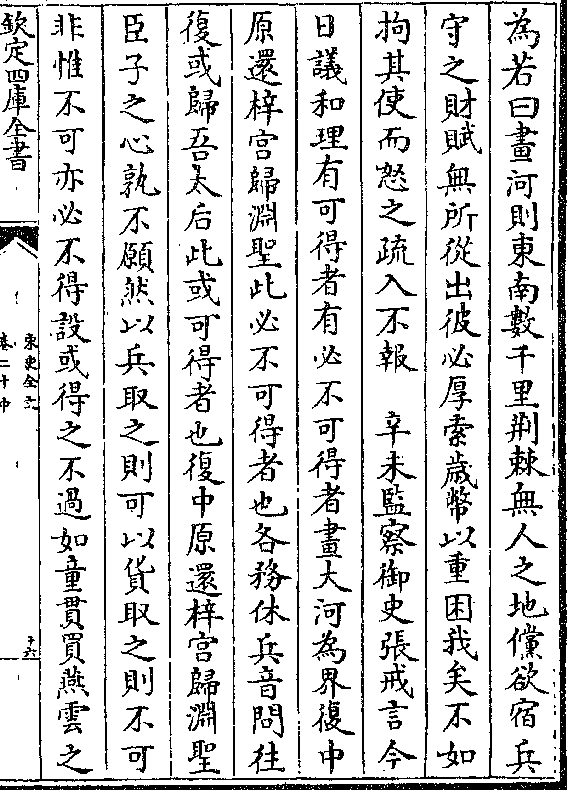 為若曰畫河則東南數千里荆棘無人之地儻欲宿兵
守之財賦無所從出彼必厚索歳幣以重困我矣不如
拘其使而怒之疏入不報　辛未監察御史張戒言今
日議和理有可得者有必不可得者畫大河為界復中
原還梓宫歸淵聖此必不可得者也各務休兵音問往
復或歸吾太后此或可得者也復中原還梓宫歸淵聖
臣子之心孰不願然以兵取之則可以貨取之則不可
非惟不可亦必不得設或得之不過如童貫買燕雲之
欽定四庫全書
宋史全文
卷二十中
十六